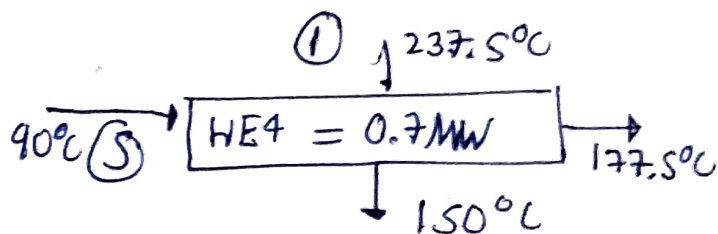 ① 237.5°C
90°C ⑤ HE4 = 0.7MW 177.5°C
150°C